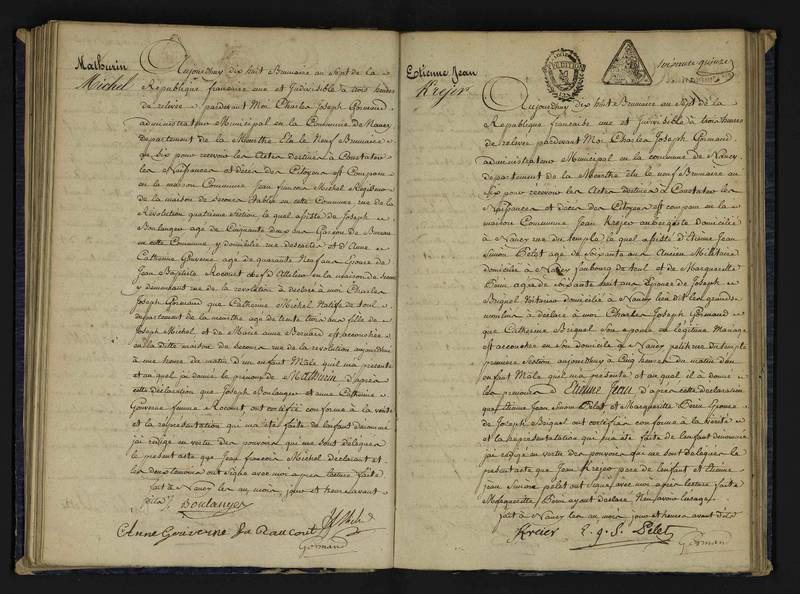 Mathurin
Michel
Aujourdhuy dix huit Brumaire an Sept de la
République française une et Indivisible à trois heures
de relevée pardevant Moi Charles Joseph Gormand
administrateur Municipal en la Commune de Nancy
Département de la Meurthe Elu le Neuf Brumaire
an Six pour recevoir les Actes destinés à Constater
les Naissances et décès des Citoyens est Comparu
en la maison Commune Jean françois Michel Régisseur
de la maison de secours Etablie en cette Commune rue de la
Révolution quatrieme Section le quel assisté de Joseph
Boulanger age de Cinquante deux ans Garçon de Bureau
en cette Commune y domicilié rue descartes et d'Anne
Catherine Gouverne age de quarante Neuf ans Epouse de
Jean Baptiste Rocourt chef d'Attelier en la maison de secours
y demeurant rue de la revolution à déclaré à moi Charles
Joseph Gormand que Catherine Michel Native de toul
département de la meurthe agé de trente trois ans fille de
Joseph Michel et de Marie anne Bernard est accouchée
en la ditte maison de secours rue de la revolution aujourdhuy
à une heure du matin d'un enfant Male quil ma présenté
et au quel ja donné le prénom de Mathurin d'après
cette déclaration que Joseph Boulanger et anne Catherine
Gouverne femme Rocourt ont certifié conforme à la vérité
et la représentation qui ma été faite de lenfant denommé
jai rédigé en vertu des pouvoirs qui me sont délégués
le présent acte que Jean françois Michel déclarant et
les deux temoins ont signé avec moi après lecture faite
fait à Nancy les an mois jour et heure avant
dits
Boulanger
Anne Gouverne fe Raucourt
Michel
Gormand
Etienne Jean
Krejer
soixante quinze
Aujourdhuy dix huit Brumaire an Sept de la
République française une et Indivisible à trois heures
de relevée pardevant Moi Charles Joseph Gormand
administrateur Municipal en la commune de Nancy
département de la Meurthe élu le neuf Brumaire an
Six pour recevoir les Actes destinés à Constater les
Naissances et décès des Citoyens est comparu en la
maison Commune Jean Krejer aubergiste domicilié
à Nancy rue du temple le quel assisté d'Etienne Jean
Simon Pelet age de soixante ans Ancien Militaire
domicilié à Nancy faubourg de toul et de Marguerite
age de soixante huit ans Epouse de Joseph
Briquel Voiturier domicilié à Nancy
moulin à déclaré à moi Charles Joseph Gormand
que Catherine Briquel son epouse en légitime Mariage
est accouchée en son domicile à Nancy petite rue du temple
première Section aujourdhuy à Cinq heures du matin d'un
enfant Male quil ma présenté et au quel il a donné
les prenoms d'Etienne Jean d'après cette déclaration
que Etienne Jean Simon Pelet et Marguerite Epouse
de Joseph Briquel ont certifiée conforme à la vérité et
la Représentation qui ma été faite de lenfant dénommé
jai redigé en vertu des pouvoirs qui me sont délégués le
présent acte que Jean Krejer père de lenfant et Etienne
jean Simon pelet ont Signé avec moi après lecture faite
Marguerite ayant déclaré Nen savoir lusage
fait à Nancy les an mois jour et heure avant dits
Kreier
E. J. S. Pelet
Gormand